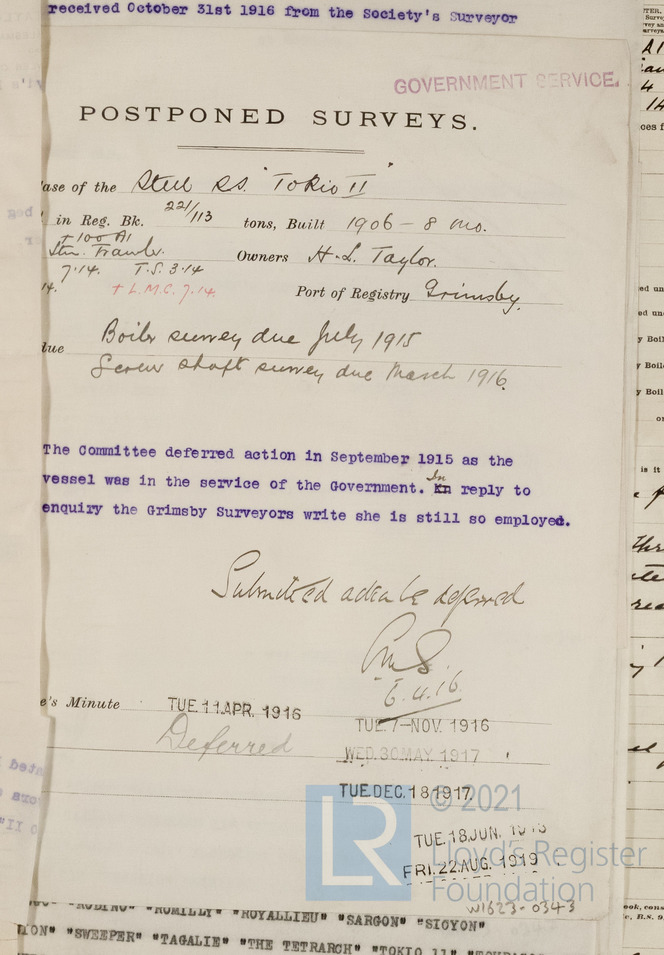 received October 31st 1916 from the Society's Surveyor
GOVERNMENT SERVICE.
POSTPONED SURVEYS.
ase of the Steel S.S. "Tokio II"
in Reg. Bk. 221/113 tons, Built 1906 - 8 mo.
+100 A1
Stm. Trawler. Owners H. L. Taylor.
7.14. T.S. 3.14
14. + L.M.C. 7.14. Port of Registry Grimsby.
due Boiler survey due July 1915
Screw shaft survey due March 1916.
The Committee deferred action in September 1915 as the
vessel was in the service of the Government. In reply to
enquiry the Grimsby Surveyors write she is still so employed.
Submitted action be deferred
6.4.16.
e's Minute TUE. 11 APR. 1916
TUE. 7-NOV. 1916
Deferred
WED. 30 MAY. 1917
TUE. DEC. 18 1917.
© 2021
TUE. 18 JUN.
LR
Lloyd's Register
FRI. 22 AUG. 1919
Foundation
W1623-0343
"ROMILLY" "ROYALLIEU" "SARGON" "SICYON"
"SWEEPER" "TAGALIE" "THE TETRARCH" "TOKIO 11"